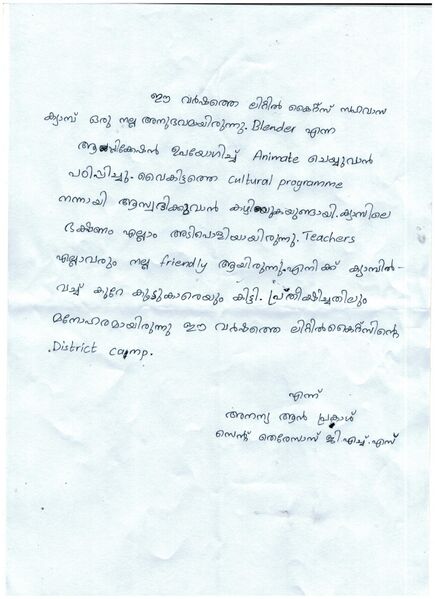 ഈ വർഷത്തെ ലിറ്റിൽ കൈറ്റ്സ് സഹവാസ
ക്യാമ്പ് ഒരു നല്ല അനുഭവമായിരുന്നു. Blender എന്ന
ആപ്ലിക്കേഷൻ ഉപയോഗിച്ച് Animate ചെയ്യുവാൻ
പഠിപ്പിച്ചു. വൈകിട്ടത്തെ cultural programme
നന്നായി ആസ്വദിക്കുവാൻ കഴിയുകയുണ്ടായി. ക്യാമ്പിലെ
ഭക്ഷണം എല്ലാം അടിപൊളിയായിരുന്നു. Teachers
എല്ലാവരും നല്ല friendly ആയിരുന്നു. എനിക്ക് ക്യാമ്പിൽ-
വച്ച് കുറേ കൂട്ടുകാരെയും കിട്ടി. പ്രതീക്ഷിച്ചതിലും
മനോഹരമായിരുന്നു ഈ വർഷത്തെ ലിറ്റിൽകൈറ്റ്സിന്റെ
District camp.
എന്ന്
അനന്യ ആൻ പ്രകാശ്
സെന്റ് തെരേസാസ് ജി.എച്ച്.എസ്